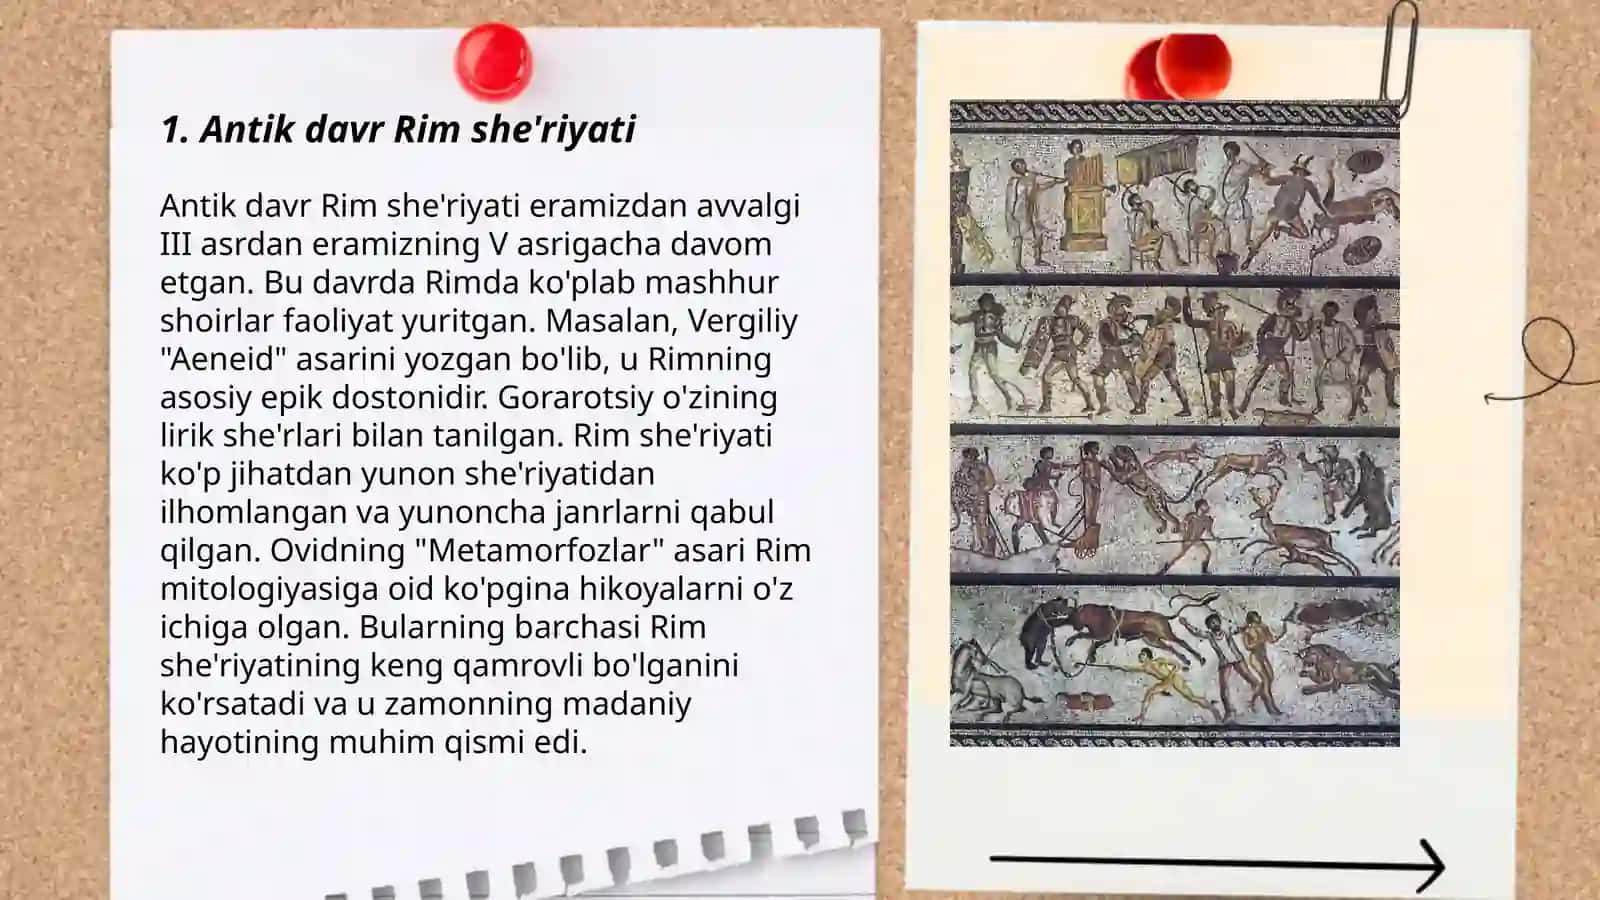 1. Antik davr Rim she'riyati
Antik davr Rim she'riyati eramizdan avvalgi
III asrdan eramizning V asrigacha davom
etgan. Bu davrda Rimda ko'plab mashhur
shoirlar faoliyat yuritgan. Masalan, Vergiliy
"Aeneid" asarini yozgan bo'lib, u Rimning
asosiy epik dostonidir. Gorarotsiy o'zining
lirik she'rlari bilan tanilgan. Rim she'riyati
ko'p jihatdan yunon she'riyatidan
ilhomlangan va yunoncha janrlarni qabul
qilgan. Ovidning "Metamorfozlar" asari Rim
mitologiyasiga oid ko'pgina hikoyalarni o'z
ichiga olgan. Bularning barchasi Rim
she'riyatining keng qamrovli bo'lganini
ko'rsatadi va u zamonning madaniy
hayotining muhim qismi edi.